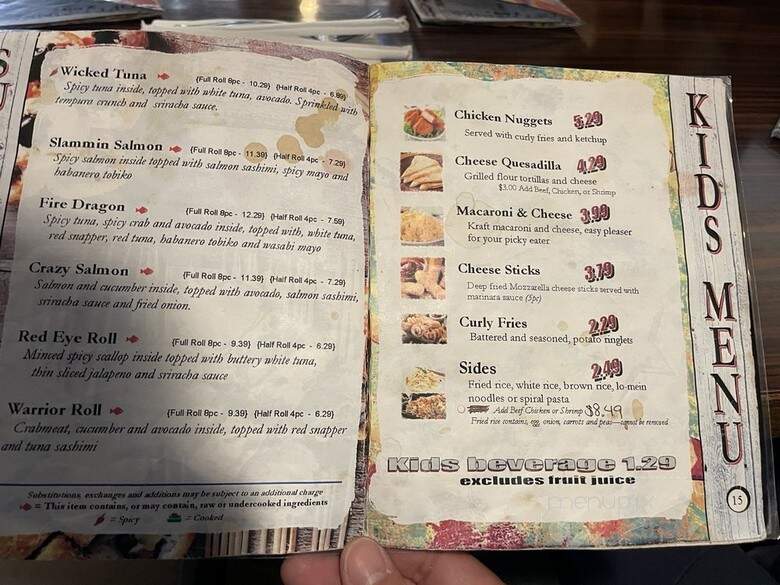 Wicked Tuna {Full Roll 8pc - 10.29} {Half Roll 4pc - 6.89}
Spicy tuna inside, topped with white tuna, avocado. Sprinkled with
tempura crunch and sriracha sauce.
Slammin Salmon {Full Roll 8pc - 11.39} {Half Roll 4pc - 7.29}
Spicy salmon inside topped with salmon sashimi, spicy mayo and
habanero tobiko
Fire Dragon {Full Roll 8pc - 12.29} {Half Roll 4pc - 7.59}
Spicy tuna, spicy crab and avocado inside, topped with, white tuna,
red snapper, red tuna, habanero tobiko and wasabi mayo
Crazy Salmon {Full Roll 8pc - 11.39} {Half Roll 4pc - 7.29}
Salmon and cucumber inside, topped with avocado, salmon sashimi,
sriracha sauce and fried onion.
Red Eye Roll {Full Roll 8pc - 9.39} {Half Roll 4pc - 6.29}
Minced spicy scallop inside topped with buttery white tuna,
thin sliced jalapeno and sriracha sauce
Warrior Roll {Full Roll 8pc - 9.39} {Half Roll 4pc - 6.29}
Crabmeat, cucumber and avocado inside, topped with red snapper
and tuna sashimi
Substitutions, exchanges and additions may be subject to an additional charge
= This item contains, or may contain, raw or undercooked ingredients
= Spicy = Cooked
Chicken Nuggets 5.29
Served with curly fries and ketchup
Cheese Quesadilla 4.29
Grilled flour tortillas and cheese
$3.00 Add Beef, Chicken, or Shrimp
Macaroni & Cheese 3.99
Kraft macaroni and cheese, easy pleaser
for your picky eater
Cheese Sticks 3.79
Deep fried Mozzarella cheese sticks served with
marinara sauce (5pc)
Curly Fries 2.29
Battered and seasoned, potato ringlets
Sides 2.49
Fried rice, white rice, brown rice, lo-mein
noodles or spiral pasta
Add Beef Chicken or Shrimp $8.49
Fried rice contains, egg, onion, carrots and peas—cannot be removed
Kids beverage 1.29
excludes fruit juice
KIDS MENU
15